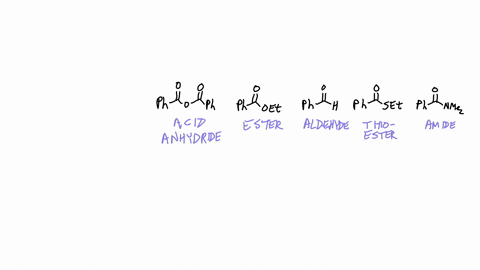 O O O O O O
Ph O Ph Ph OEt Ph H Ph SEt Ph NMe2
ACID ESTER ALDEHYDE THIO- AMIDE
ANHYDRIDE ESTER